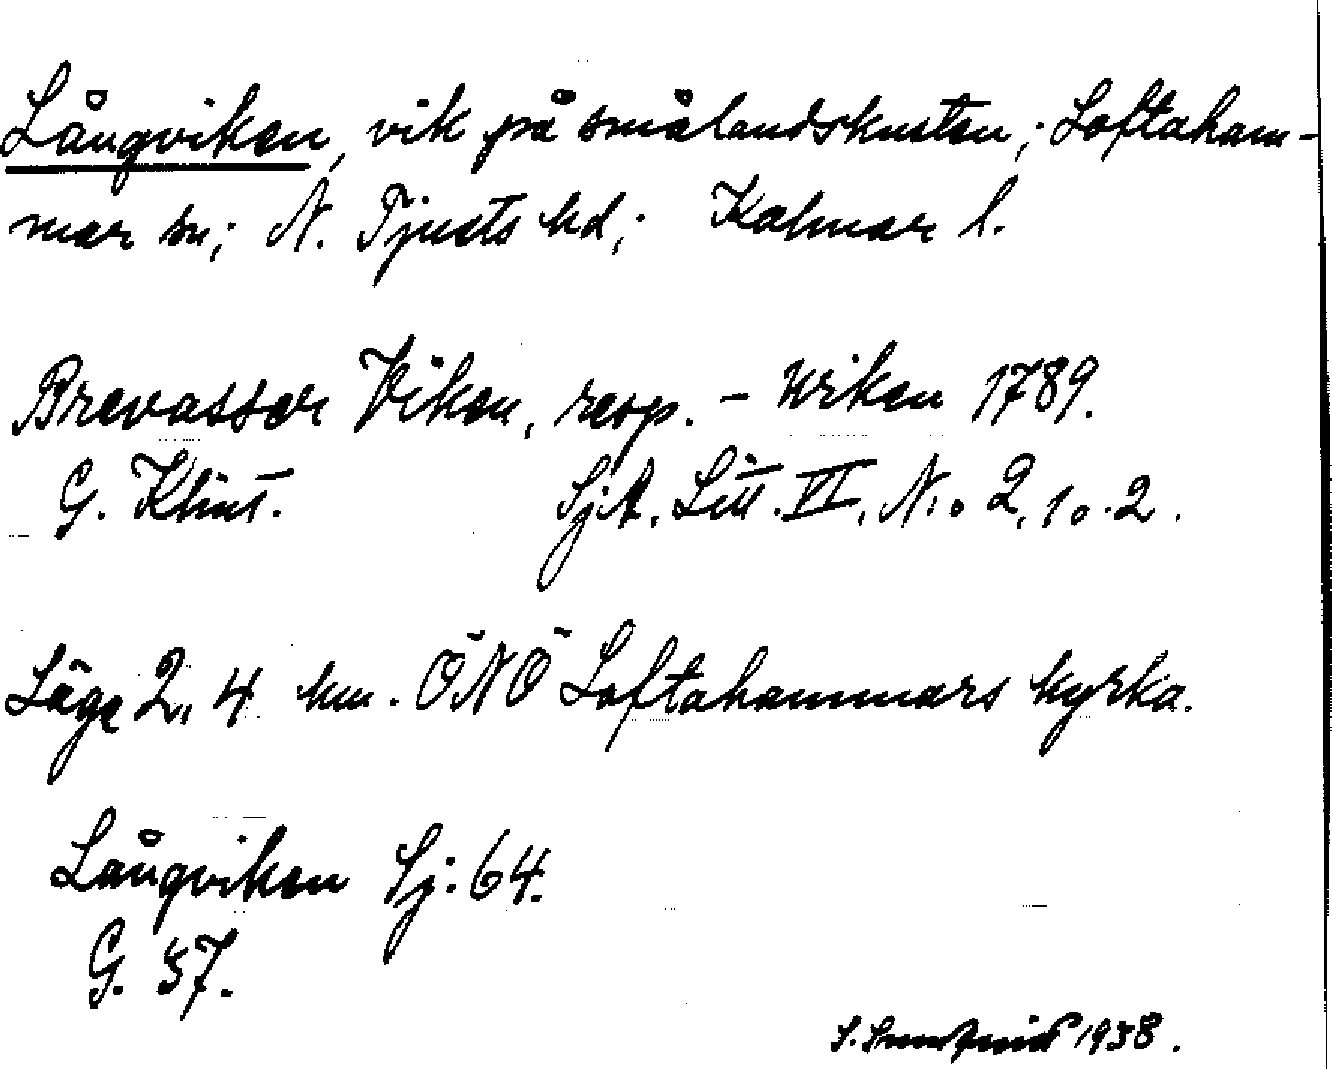 Långviken, vik på smålandskusten; Loftaham-
mar sn; N. Tjusts hd; Kalmar l.
Brevassor Viken, resp. - Wiken 1789.
G. Klint. Sj.A. Litt. VI, N:o 2, 1 o. 2.
Läge 2,4 km. ÖNÖ Loftahammars kyrka.
Långviken Sj. 64.
G. 37.
S. 1938.